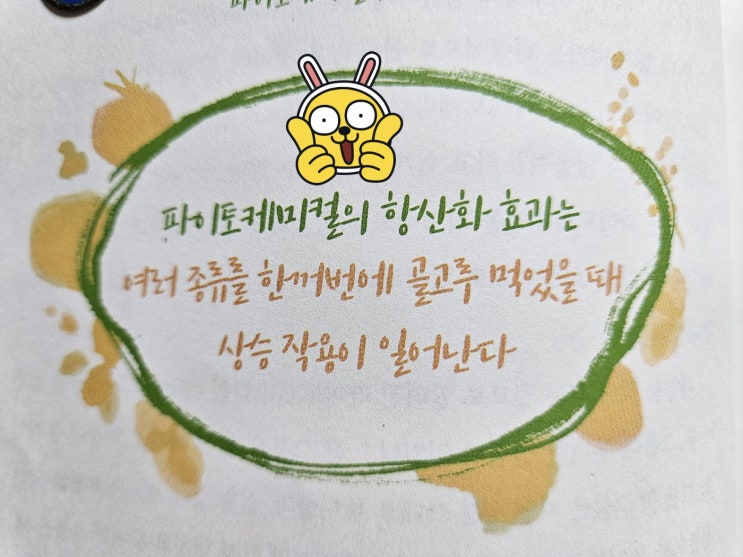 파이토케미컬의 항산화 효과는
여러 종류를 한꺼번에 골고루 먹었을 때
상승 작용이 일어난다